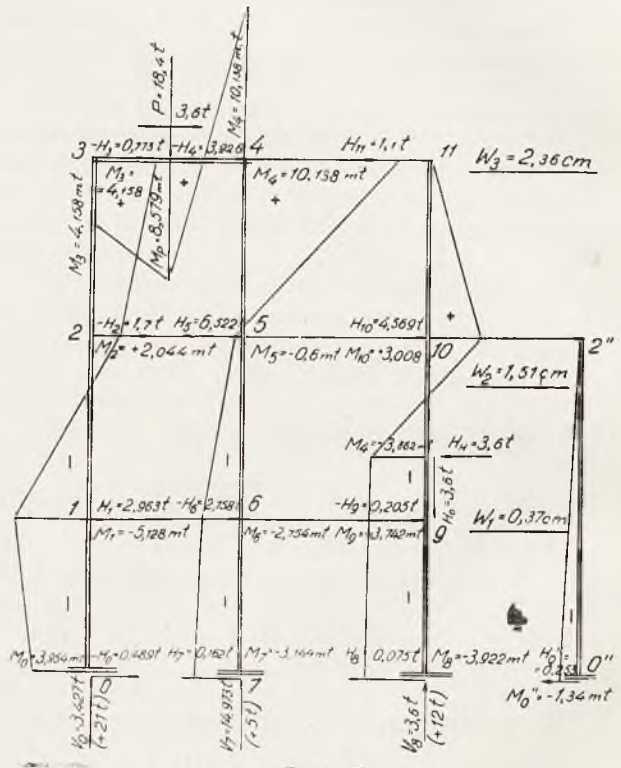 P=18,4t
3,6t
M₄=10,138 m.t
3
-H₃=0,773t
-H₄=3,926
4
H₁₁=1,1t
11
W₃=2,36cm
M₃=
=4,158
+
+
Mₚ=8,579mt
M₄=10,138 mt
+
M₃=4,158mt
2
-H₂=1,7t
H₅=6,522
5
H₁₀=4,569t
+
2"
M₂=+2,044 mt
M₅=-0,6mt
M₁₀=3,008
10
W₂=1,51cm
M₄=-3,862mt
H₄=3,6t
H₀=3,6t
1
H₁=2,963t
-H₆=2,758t
6
-H₉=0,205t
9
W₁=0,37cm
M₁=-5,128mt
M₆=-2,754mt
M₉=-3,742mt
M₀=3,954mt
-H₀=0,489t
H₇=0,162t
M₇=-3,144mt
H₈
0,075t
M₈=-3,922mt
H₀"=
=0,253
0"
M₀"=-1,34mt
0
7
V₀=3,427t
(+21t)
V₇=14,973t
(+5t)
V₈=3,6t
(+12t)